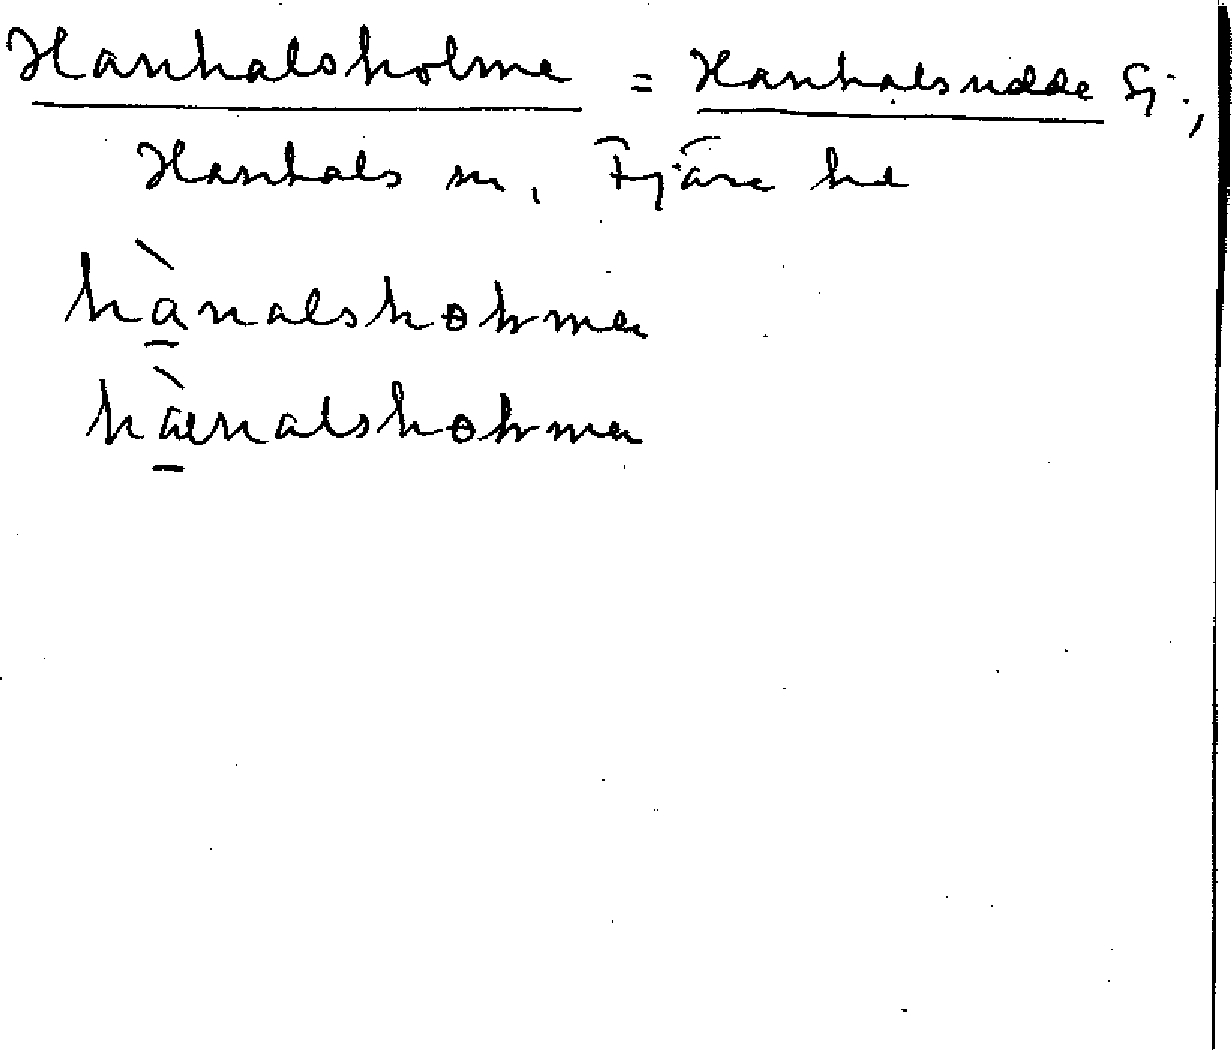 Hanhalsholme = Hanhalsudde Gj.,
Hanhals sn, Fjäre hd
hànalshɵhmen
hàenalshɵhmen